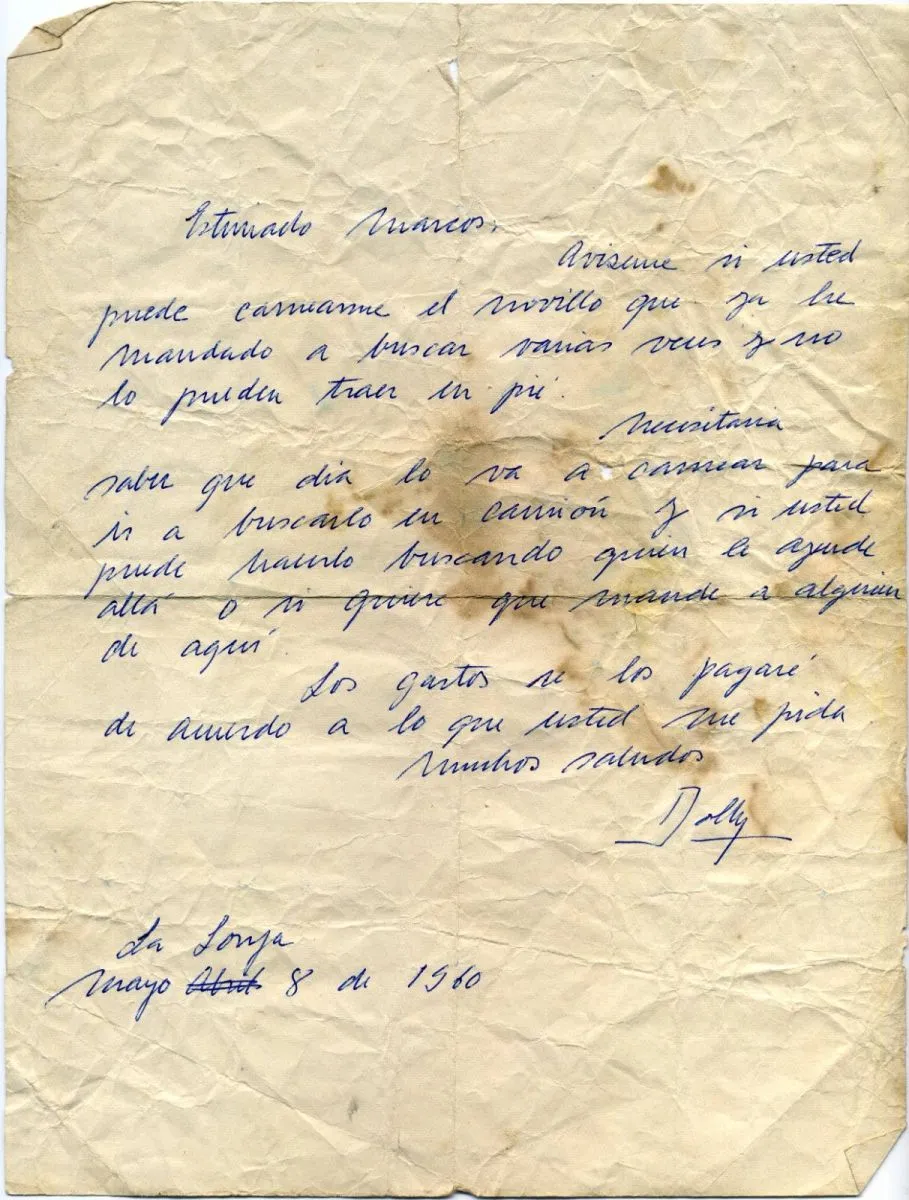 Estimado Marcos:
Aviseme si usted
puede carnearme el novillo que ya he
mandado a buscar varias veces y no
lo pueden traer en pié.
Necesitaria
saber que dia lo va a carnear para
ir a buscarlo en camión y si usted
puede hacerlo buscando quien le ayude
allá o si quiere que mande a alguien
de aquí.
Los gastos se los pagaré
de acuerdo a lo que usted me pida
Muchos saludos
Dolly
La Lonja
Mayo Abril 8 de 1960